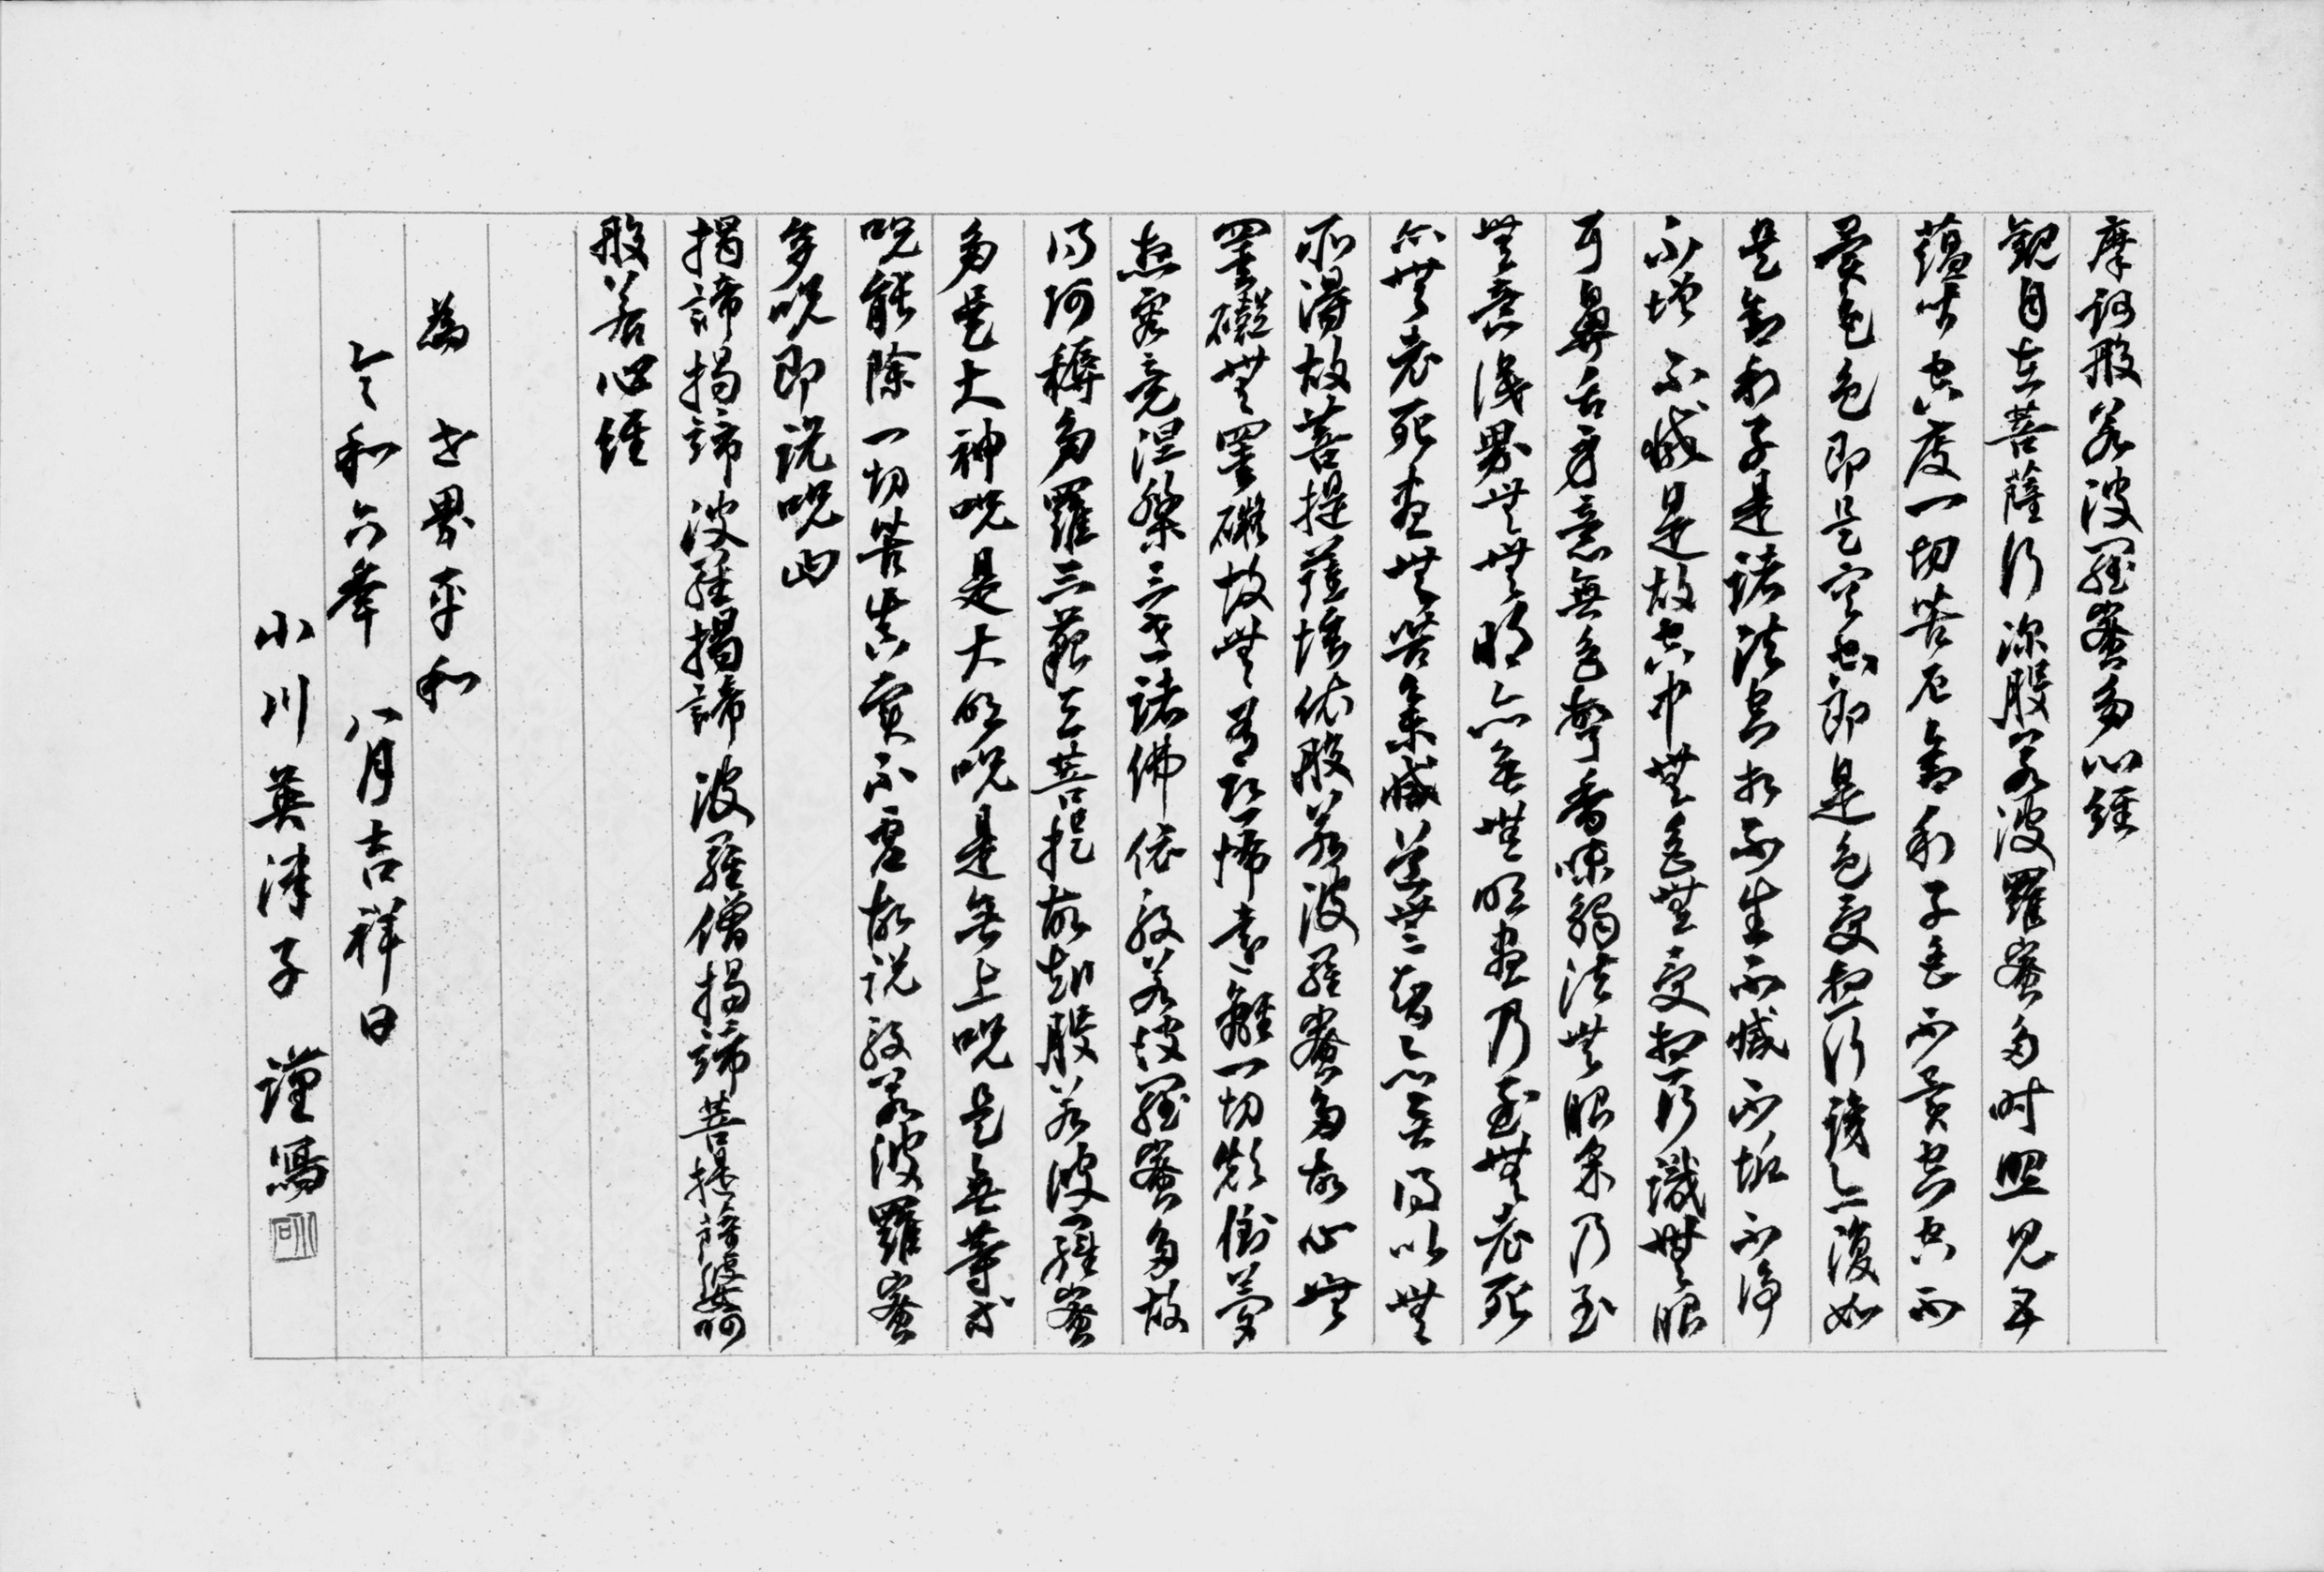 摩訶般若波羅蜜多心經
觀自在菩薩行深般若波羅蜜多時照見五
蘊皆空度一切苦厄舎利子色不異空空不
異色色即是空空即是色受想行識亦復如
是舎利子是諸法空相不生不滅不垢不浄
不増不減是故空中無色無受想行識無眼
耳鼻舌身意無色聲香味觸法無眼界乃至
無意識界無無明亦無無明盡乃至無老死
亦無老死盡無苦集滅道無智亦無得以無
所得故菩提薩埵依般若波羅蜜多故心無
罣礙無罣礙故無有恐怖遠離一切顛倒夢
想究竟涅槃三世諸佛依般若波羅蜜多故
得阿耨多羅三藐三菩提故知般若波羅蜜
多是大神呪是大明呪是無上呪是無等等
呪能除一切苦真實不虚故説般若波羅蜜
多呪即説呪曰
揭諦揭諦 波羅揭諦 波羅僧揭諦 菩提薩婆訶
般若心經
為 世界平和
令和六年 八月吉祥日
小川英津子 謹寫